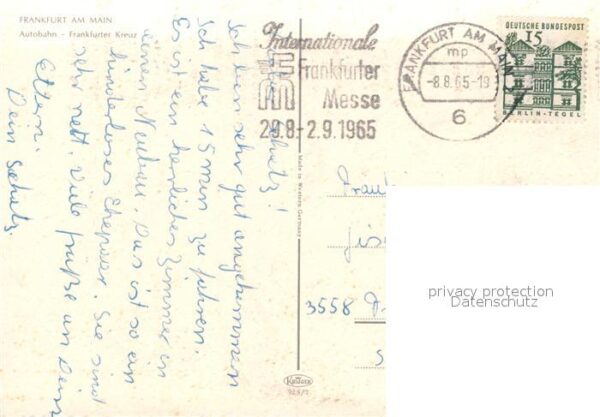 FRANKFURT AM MAIN
Autobahn - Frankfurter Kreuz
Internationale
Frankfurter
Messe
29.8-2.9.1965
FRANKFURT AM MAIN
mp
-8.8.65-19
6
DEUTSCHE BUNDESPOST
15
BERLIN-TEGEL
Schatz!
Ich bin sehr gut angekommen
Ich habe 15 min zu fahren.
Es ist ein herrliches Zimmer in
einem Neubau. Das ist so ein
kinderloses Ehepaar. Sie sind
sehr nett. Viele Grüße an Deine
Eltern.
Dein Schatz.
Made in Western Germany
3558
Krüger
925/7
privacy protection
Datenschutz